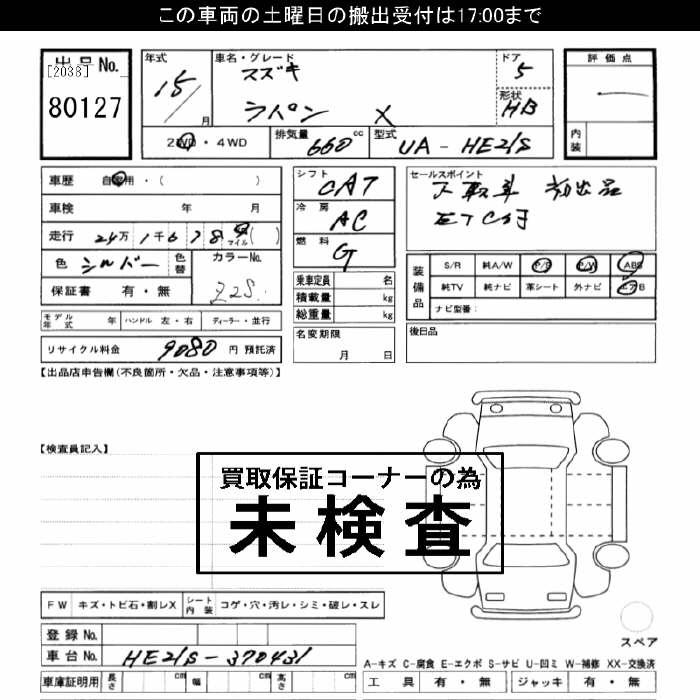 この車両の土曜日の搬出受付は17:00まで
出品No.
[2038]
80127
年式
15/
月
車名・グレード
スズキ
ラパン X
ドア
5
形状
HB
評価点
内装
2WD・4WD
排気量
660 cc
型式
UA-HE21S
車歴 自家用・( )
車検 年 月
走行 24万1千678 マイル( )
色 シルバー
色替
カラーNo.
Z2S
保証書 有・無
シフト
CAT
冷房
AC
燃料
G
セールスポイント
下取車 初出品
ETC付
乗車定員 名
積載量 kg
総重量 kg
装備品
S/R 純A/W P/S P/W ABS
純TV 純ナビ 革シート 外ナビ エアB
ナビ型番:
モデル年式 年 ハンドル 左・右 ディーラー・並行
名変期限
月 日
後日品
リサイクル料金 9080 円 預託済
【出品店申告欄(不良箇所・欠品・注意事項等)】
【検査員記入】
買取保証コーナーの為
未検査
FW キズ・トビ石・割レX
シート内装 コゲ・穴・汚レ・シミ・破レ・スレ
スペア
登録No.
車台No. HE21S-370431
A-キズ C-腐食 E-エクボ S-サビ U-凹ミ W-補修 XX-交換済
車庫証明用 長さ cm 幅 cm 高さ cm
工具 有・無 ジャッキ 有・無